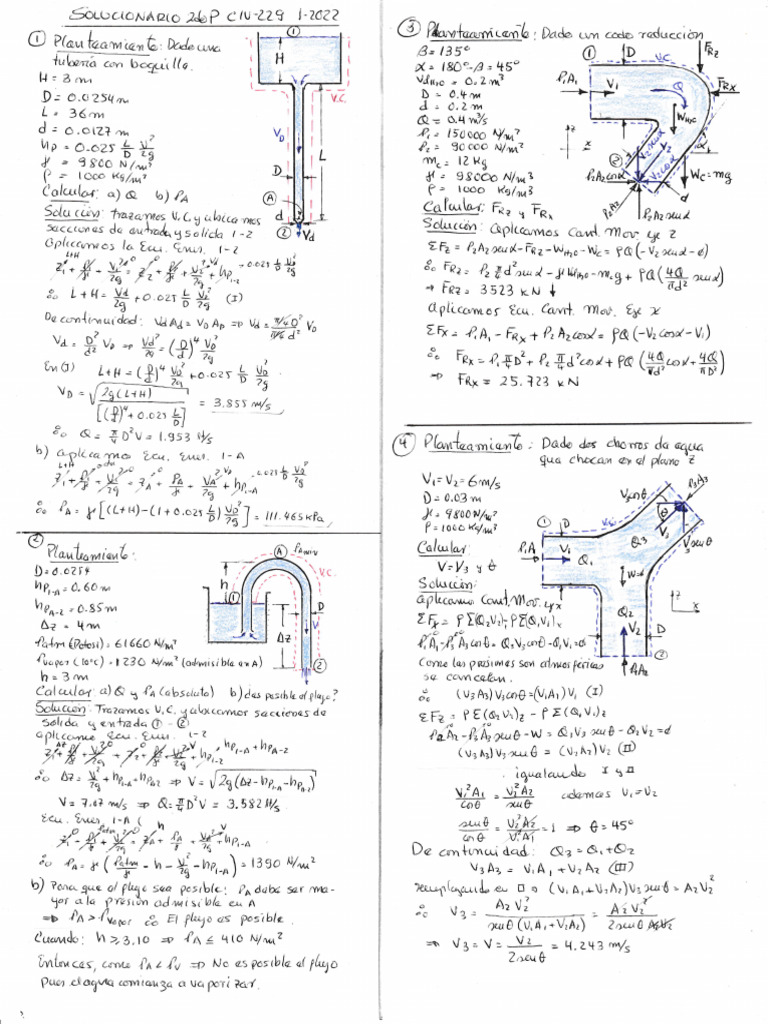 SOLUCIONARIO 2doP CIV-229 1-2022
① Planteamiento: Dado una
tubería con boquilla.
H = 3 m
D = 0.0254 m
L = 36 m
d = 0.0127 m
hp = 0.025 L/D V²/2g
γ = 9800 N/m³
ρ = 1000 Kg/m³
Calcular: a) Q b) PA
Solución: Trazamos V.C. y ubicamos
secciones de entrada y salida 1-2
Aplicamos la Ecu. Ener. 1-2
L+H = Vd²/2g + 0.025 L/D VD²/2g (I)
De continuidad: Vd Ad = VD AD
Vd = D²/d² VD ⇒ Vd²/2g = (D/d)⁴ VD²/2g
En (I) L+H = (D/d)⁴ VD²/2g + 0.025 L/D VD²/2g
VD = √(2g(L+H) / [(D/d)⁴ + 0.025 L/D]) = 3.855 m/s
∴ Q = π/4 D² V = 1.953 lt/s
b) Aplicamo Ecu. Ener. 1-A
∴ PA = γ[(L+H) - (1 + 0.025 L/D) VD²/2g] = 111.465 kPa
① H V.C. VD L D Ⓐ d ② Vd
② Planteamiento:
D = 0.0254
hp1-A = 0.60 m
hpA-2 = 0.85 m
Δz = 4 m
Patm (Potosí) = 61660 N/m²
Pvapor (10°C) = 1230 N/m² (admisible en A)
h = 3 m
Calcular: a) Q y PA (absoluto) b) ¿es posible el flujo?
Solución: Trazamos V.C. y ubicamos secciones de
salida y entrada ① - ②
Aplicamo Ecu. Ener. 1-2
∴ Δz = V²/2g + hp1-A + hpA-2 ⇒ V = √(2g(Δz - hp1-A - hpA-2))
V = 7.07 m/s ⇒ Q = π/4 D² V = 3.582 lt/s
Ecu. Ener. 1-A
∴ PA = γ(Patm/γ - h - V²/2g - hp1-A) = 1390 N/m²
b) Para que el flujo sea posible: PA debe ser ma-
yor a la presión admisible en A
⇒ PA > Pvapor ∴ El flujo es posible.
Cuando: h ≥ 3.10 ⇒ PA ≤ 410 N/m²
Entonces, como PA < PV ⇒ No es posible el flujo
pues el agua comienza a vaporizar.
Ⓐ h V.C. ① Δz D V ②
③ Planteamiento: Dado un codo reducción
β = 135°
α = 180° - β = 45°
D = 0.4 m
d = 0.2 m
Q = 0.4 m³/s
P1 = 150000 N/m²
P2 = 90000 N/m²
mc = 12 kg
γ = 98000 N/m³
ρ = 1000 Kg/m³
Calcular: FRz y FRx
Solución: Aplicamos Cant. Mov. eje z
ΣFz = P2A2 senα - FRz - WH2O - Wc = ρQ(-V2 senα - 0)
∴ FRz = P2 π/4 d² senα - γ VH2O - mcg + ρQ(4Q/πd² senα)
⇒ FRz = 3523 kN ↓
Aplicamos Ecu. Cant. Mov. Eje x
ΣFx = P1A1 - FRx + P2A2 cosα = ρQ(-V2 cosα - V1)
∴ FRx = P1 π/4 D² + P2 π/4 d² cosα + ρQ(4Q/πd² cosα + 4Q/πD²)
⇒ FRx = 25.723 kN
① D V.C. FRz P1A1 V1 Q FRx WH2O z x ② V2 senα V2 V2 cosα α P2A2 cosα d Wc = mg P2A2 P2A2 senα
④ Planteamiento: Dado dos chorros de agua
que chocan en el plano z
V1 = V2 = 6 m/s
D = 0.03 m
γ = 9800 N/m³
ρ = 1000 Kg/m³
Calcular:
V = V3 y θ
Solución:
Aplicamo Cant. Mov. eje x
ΣFx = ρΣ(Q2V2)x - ρΣ(Q1V1)x
P1A1 - P3A3 cosθ = Q3V3 cosθ - Q1V1 = 0
Como las presiones son atmosféricas
se cancelan.
∴ (V3A3) V3 cosθ = (V1A1) V1 (I)
ΣFz = ρΣ(Q2V2)z - ρΣ(Q1V1)z
P2A2 - P3A3 senθ - W = Q3V3 senθ - Q2V2 = 0
(V3A3) V3 senθ = (V2A2) V2 (II)
igualando I y II
V1²A1/cosθ = V2²A2/senθ además V1 = V2
senθ/cosθ = V2²A2/V1²A1 = 1 ⇒ θ = 45°
De continuidad: Q3 = Q1 + Q2
V3A3 = V1A1 + V2A2 (III)
reemplazando en II: (V1A1 + V2A2) V3 senθ = A2V2²
∴ V3 = A2V2²/(senθ(V1A1 + V2A2)) = A2V2²/(2 senθ A2V2)
⇒ V3 = V = V2/(2 senθ) = 4.243 m/s
① D P1A V1 Q1 V.C. V3 cosθ θ P3A3 Q3 V3 V3 senθ Q2 V2 z x D ② P2A2